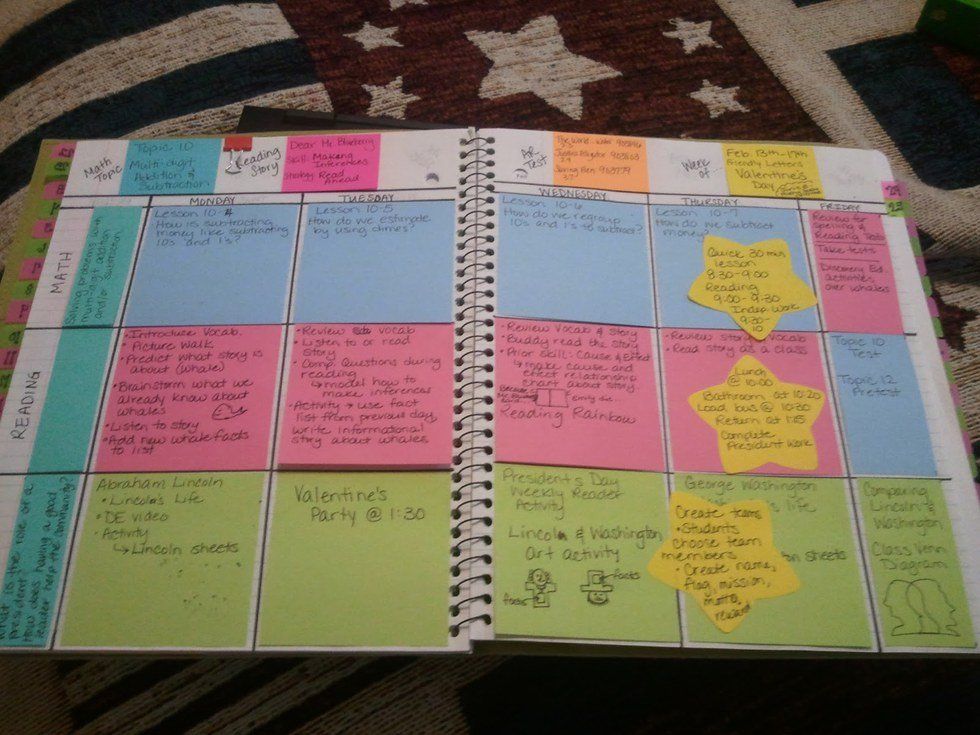 Math
Topic
Topic 10
Multi-digit
Addition &
Subtraction
Reading
Story
Dear Mr. Blueberry
Skill: Making
Inferences
Strategy: Read
Ahead
AR
Test
Week
of...
Feb. 13th-17th
Friendly Letters
Valentine's
Day
MONDAY
TUESDAY
WEDNESDAY
THURSDAY
FRIDAY
MATH
Solving problems with
multi-digit addition
and/or subtraction
Lesson 10-4
How is subtracting
money like subtracting
10s and 1's?
Lesson 10-5
How do we estimate
by using dimes?
Lesson 10-6
How do we regroup
10s and 1's to subtract?
Lesson 10-7
How do we subtract
money?
Quick 30 mins
lesson
8:30-9:00
Reading
9:00-9:30
Indep Work
9:30-
10
Review for
Spelling &
Reading Tests
Take tests
Discovery Ed.
activities
over whales
READING
• Introduce Vocab.
• Picture Walk
• Predict what story is
about (whale)
• Brainstorm what we
already know about
whales
• Listen to story
• Add new whale facts
to list
• Review vocab
• Listen to or read
story
• Comp. Questions during
reading
↳ model how to
make inferences
• Activity → use fact
list from previous day,
write informational
story about whales
• Review Vocab & story
• Buddy read the story
• Prior skill: Cause & Effect
↳ make cause and
effect relationship
chart about story
Because
Emily did...
Reading Rainbow
• Review story & vocab
• Read story as a class
Lunch
@ 10:00
Bathroom at 10:20
Load bus @ 10:30
Return at 1:15
Complete
President Work
Topic 10
Test
Topic 12
Pretest
What is the role of a
president?
How does having a good
leader help the community?
Abraham Lincoln
• Lincoln's Life
• DE video
• Activity
↳ Lincoln sheets
Valentine's
Party @ 1:30
President's Day
Weekly Reader
Activity
Lincoln & Washington
Art activity
facts
facts
George Washington
's life
on sheets
Create teams
• Students
choose team
members
• Create name,
flag, mission,
motto,
reward
Comparing
Lincoln &
Washington
Class Venn
Diagram